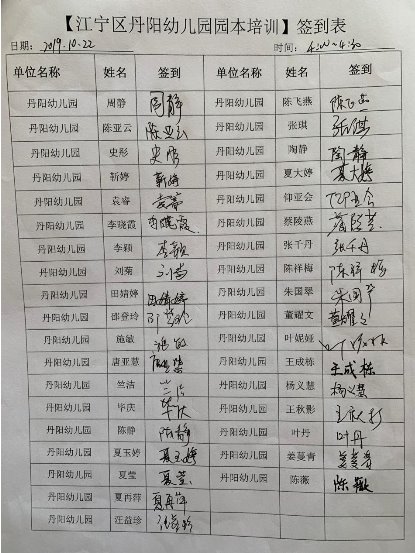 【江宁区丹阳幼儿园园本培训】签到表
日期: 2019.10.22 时间: 4:00~4:30
单位名称 姓名 签到 单位名称 姓名 签到
丹阳幼儿园 周静 周静 丹阳幼儿园 陈飞燕
丹阳幼儿园 陈亚云 陈亚云 丹阳幼儿园 张琪 张琪
丹阳幼儿园 史彤 史彤 丹阳幼儿园 陶静 陶静
丹阳幼儿园 靳婷 靳婷 丹阳幼儿园 夏大婷 夏大婷
丹阳幼儿园 袁睿 袁睿 丹阳幼儿园 仰亚会
丹阳幼儿园 李晓霞 李晓霞 丹阳幼儿园 蔡陵燕
丹阳幼儿园 李颖 李颖 丹阳幼儿园 张千丹 张千丹
丹阳幼儿园 刘菊 刘菊 丹阳幼儿园 陈祥梅 陈祥梅
丹阳幼儿园 田婧婷 田婧婷 丹阳幼儿园 朱国翠
丹阳幼儿园 邵登玲 丹阳幼儿园 董耀文 董耀文
丹阳幼儿园 施敏 施敏 丹阳幼儿园 叶妮娜
丹阳幼儿园 唐亚慧 丹阳幼儿园 王成栋 王成栋
丹阳幼儿园 竺洁 竺洁 丹阳幼儿园 杨义慧 杨义慧
丹阳幼儿园 毕庆 毕庆 丹阳幼儿园 王秋影
丹阳幼儿园 陈静 陈静 丹阳幼儿园 叶丹 叶丹
丹阳幼儿园 夏玉婷 夏玉婷 丹阳幼儿园 姜蔓青 姜蔓青
丹阳幼儿园 夏莹 夏莹 丹阳幼儿园 陈薇 陈薇
丹阳幼儿园 夏冉萍 夏冉萍
丹阳幼儿园 汪益珍 汪益珍